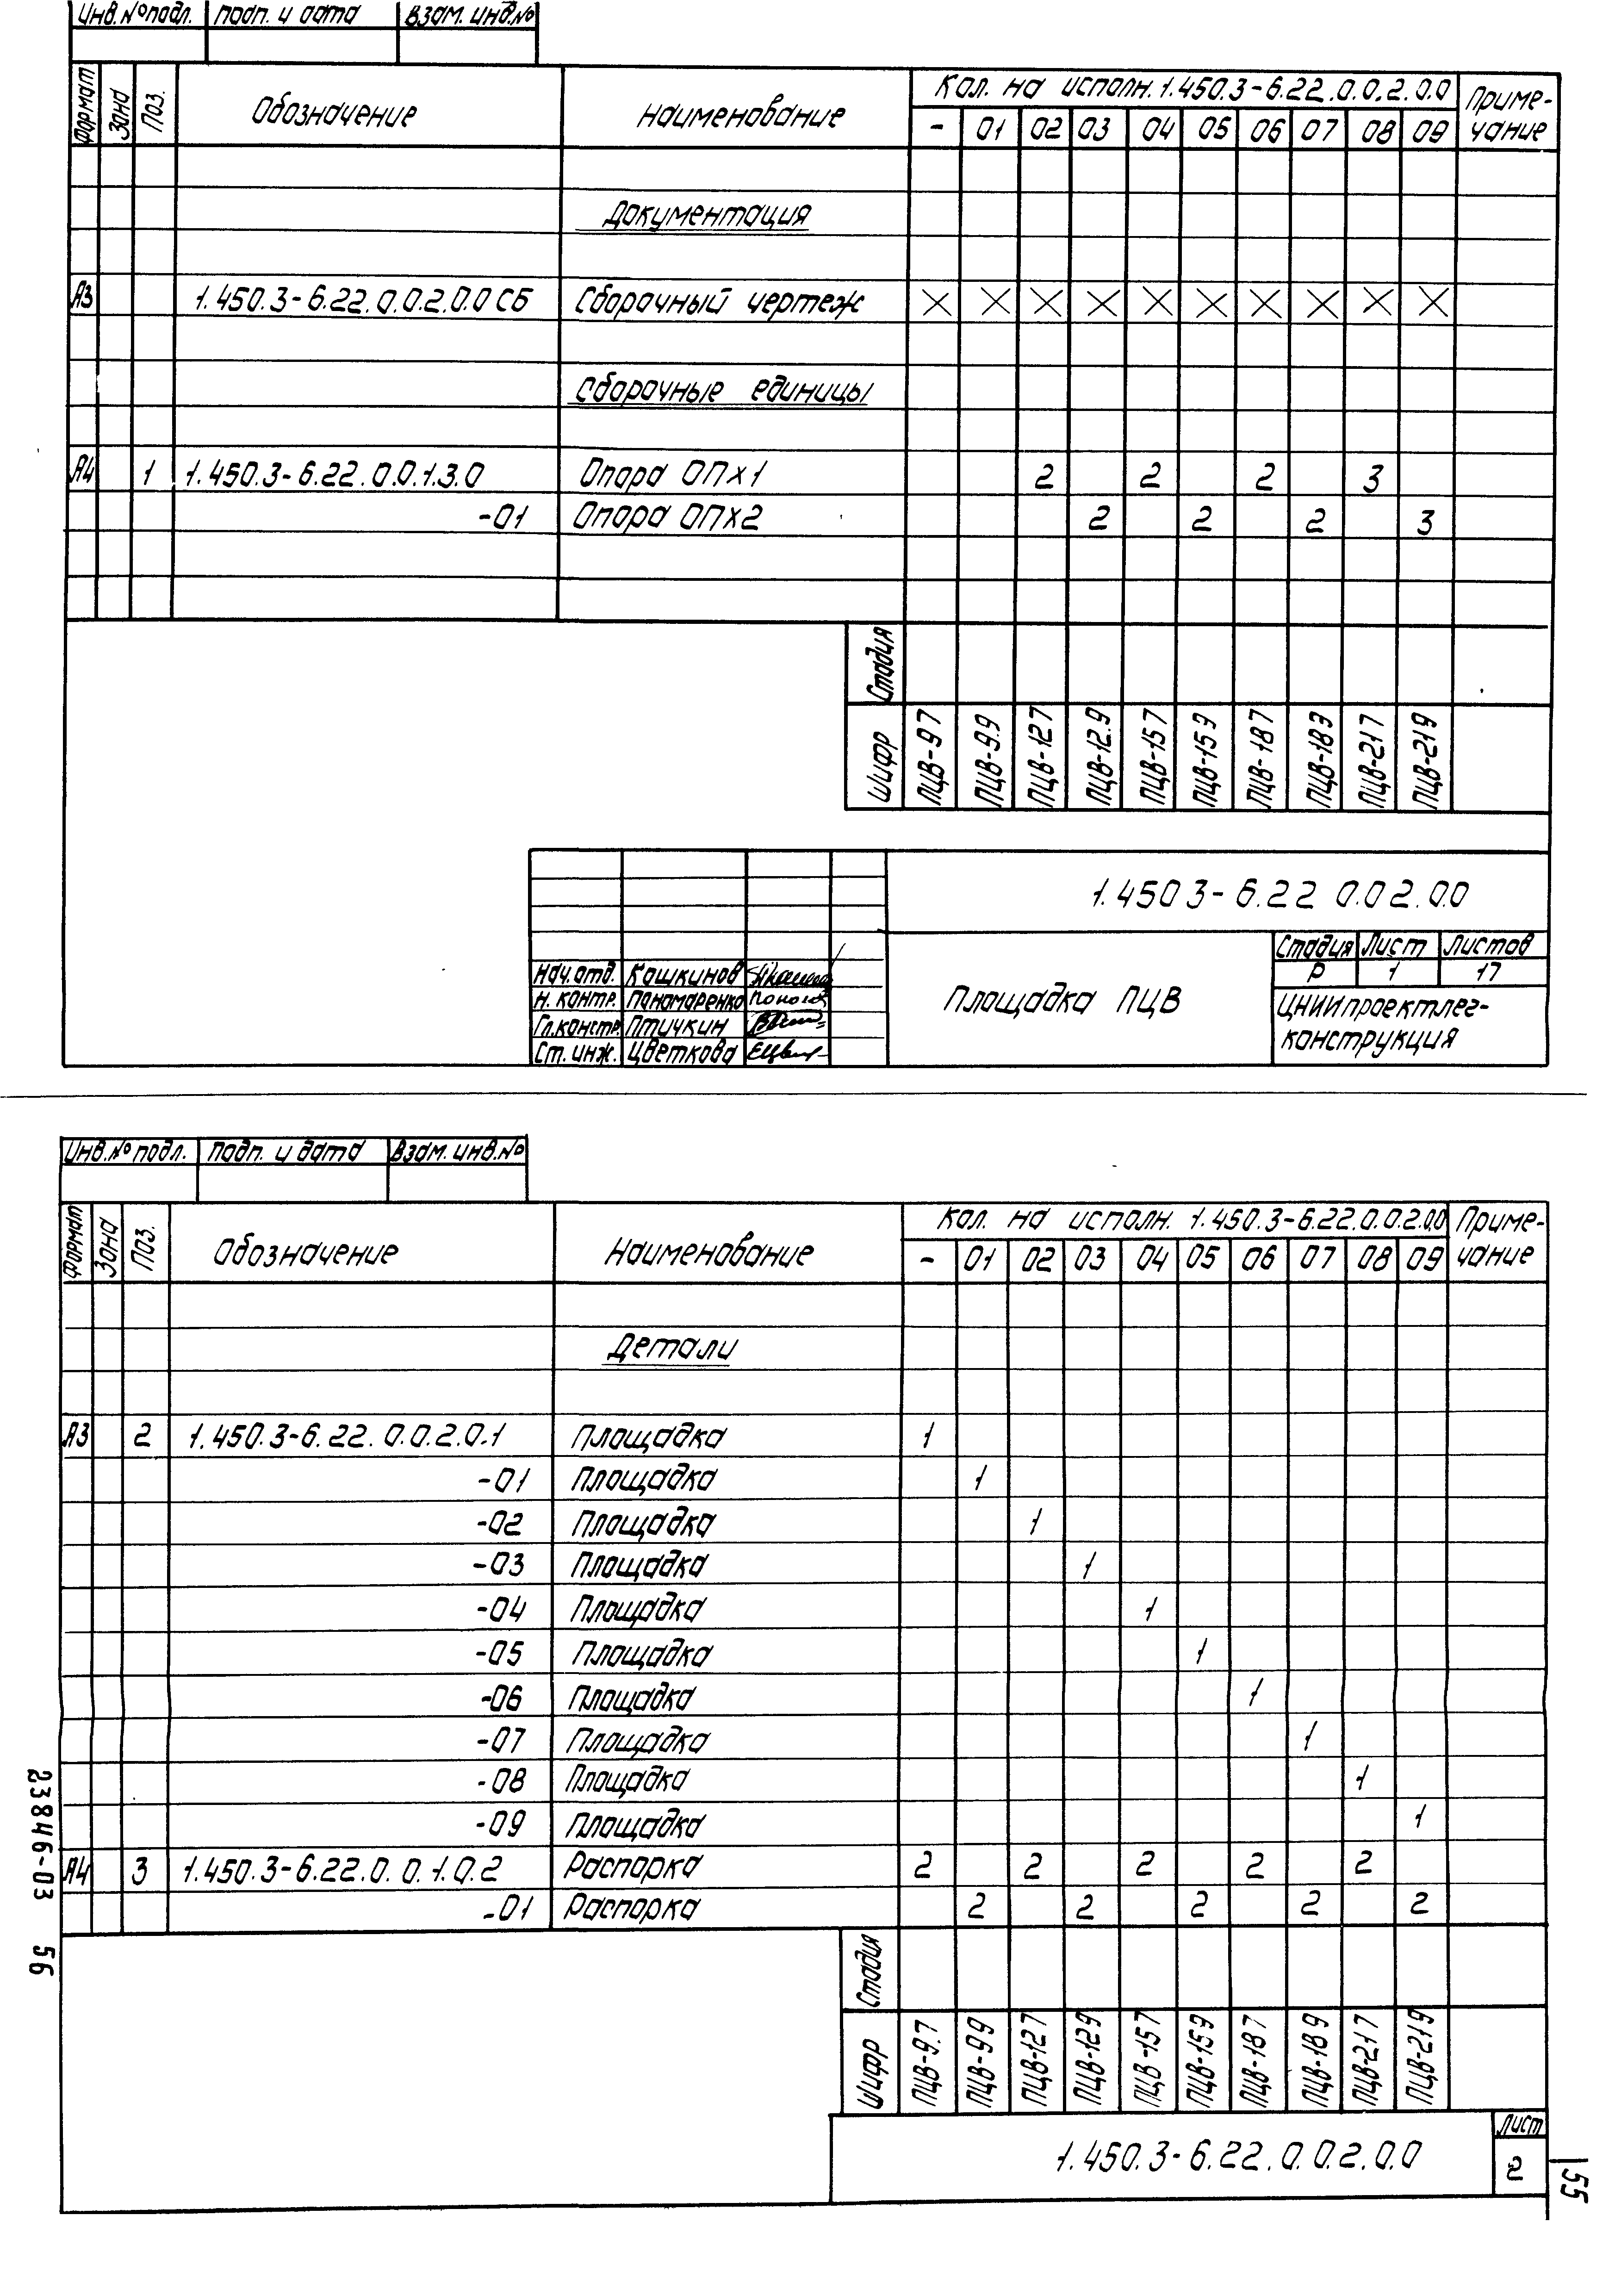 Инв.№подл. подп. и дата взам. инв.№
Формат Зона Поз. Обозначение Наименование Кол. на исполн. 1.450.3-6.22.0.0.2.0.0 Приме-
- 01 02 03 04 05 06 07 08 09 чание
Документация
А3 1.450.3-6.22.0.0.2.0.0 СБ Сборочный чертеж X X X X X X X X X X
Сборочные единицы
А4 1 1.450.3-6.22.0.0.1.3.0 Опора ОПх1 2 2 2 3
-01 Опора ОПх2 2 2 2 3
Стадия
Шифр ПЦВ-97 ПЦВ-9.9 ПЦВ-127 ПЦВ-12.9 ПЦВ-157 ПЦВ-159 ПЦВ-187 ПЦВ-189 ПЦВ-217 ПЦВ-219
1.450 3-6.22 0.0 2.0.0
Стадия Лист Листов
Р 1 17
Нач.отд. Кашкинов
Н. контр. Пономаренко
Гл.констр. Птичкин
Ст. инж. Цветкова
Площадка ПЦВ
ЦНИИпроектлег-
конструкция
Инв.№ подл. подп. и дата Взам. инв.№
Формат Зона Поз. Обозначение Наименование Кол. на исполн. 1.450.3-6.22.0.0.2.0.0 Приме-
- 01 02 03 04 05 06 07 08 09 чание
Детали
А3 2 1.450.3-6.22.0.0.2.0.1 Площадка 1
-01 Площадка 1
-02 Площадка 1
-03 Площадка 1
-04 Площадка 1
-05 Площадка 1
-06 Площадка 1
-07 Площадка 1
-08 Площадка 1
-09 Площадка 1
А4 3 1.450.3-6.22.0.0.1.0.2 Распорка 2 2 2 2 2
-01 Распорка 2 2 2 2 2
Стадия
Шифр ПЦВ-9.7 ПЦВ-99 ПЦВ-127 ПЦВ-129 ПЦВ-157 ПЦВ-159 ПЦВ-187 ПЦВ-189 ПЦВ-217 ПЦВ-219
1.450.3-6.22.0.0.2.0.0
Лист
2
23846-03 56
55